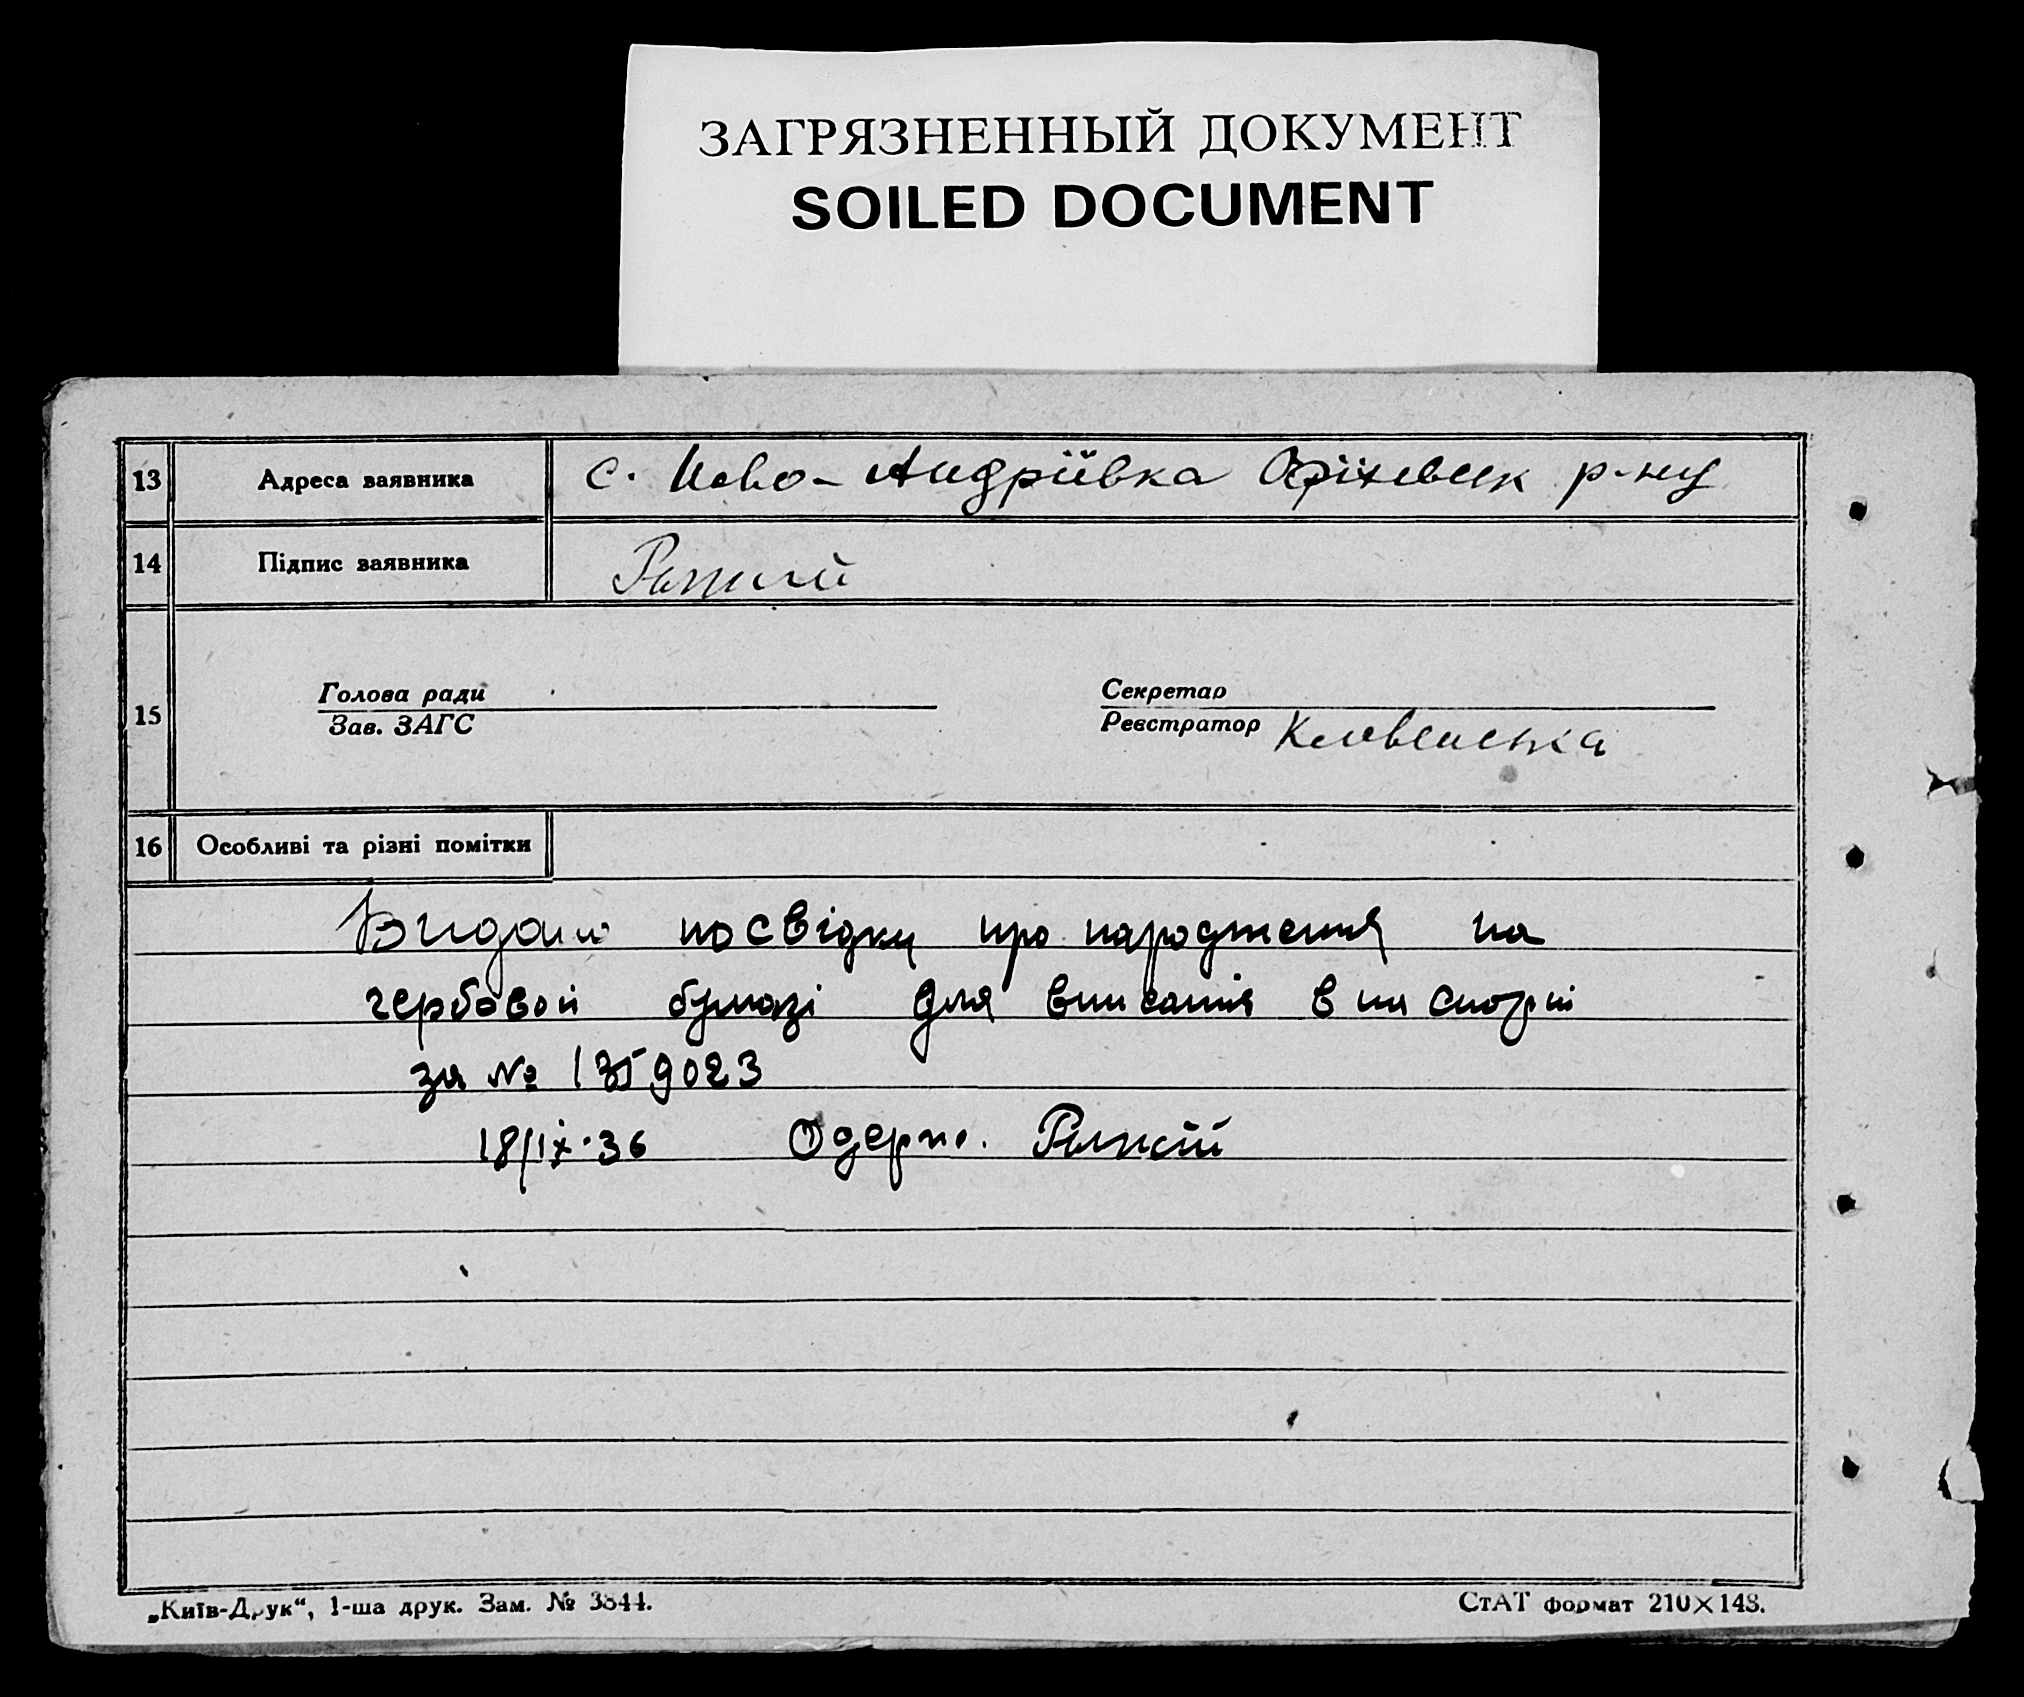 ЗАГРЯЗНЕННЫЙ ДОКУМЕНТ
SOILED DOCUMENT
13 Адреса заявника с. Ново-Андріївка Оріхівськ р-ну
14 Підпис заявника
15 Голова ради Секретар
Зав. ЗАГС Реєстратор
16 Особливі та різні помітки
Видано посвідку про народження на
гербовой бумазі для вписання в паспорт
за №
18/IX-36 Одерж.
„Київ-Друк“, 1-ша друк. Зам. № 3844.
СтАТ формат 210×148.